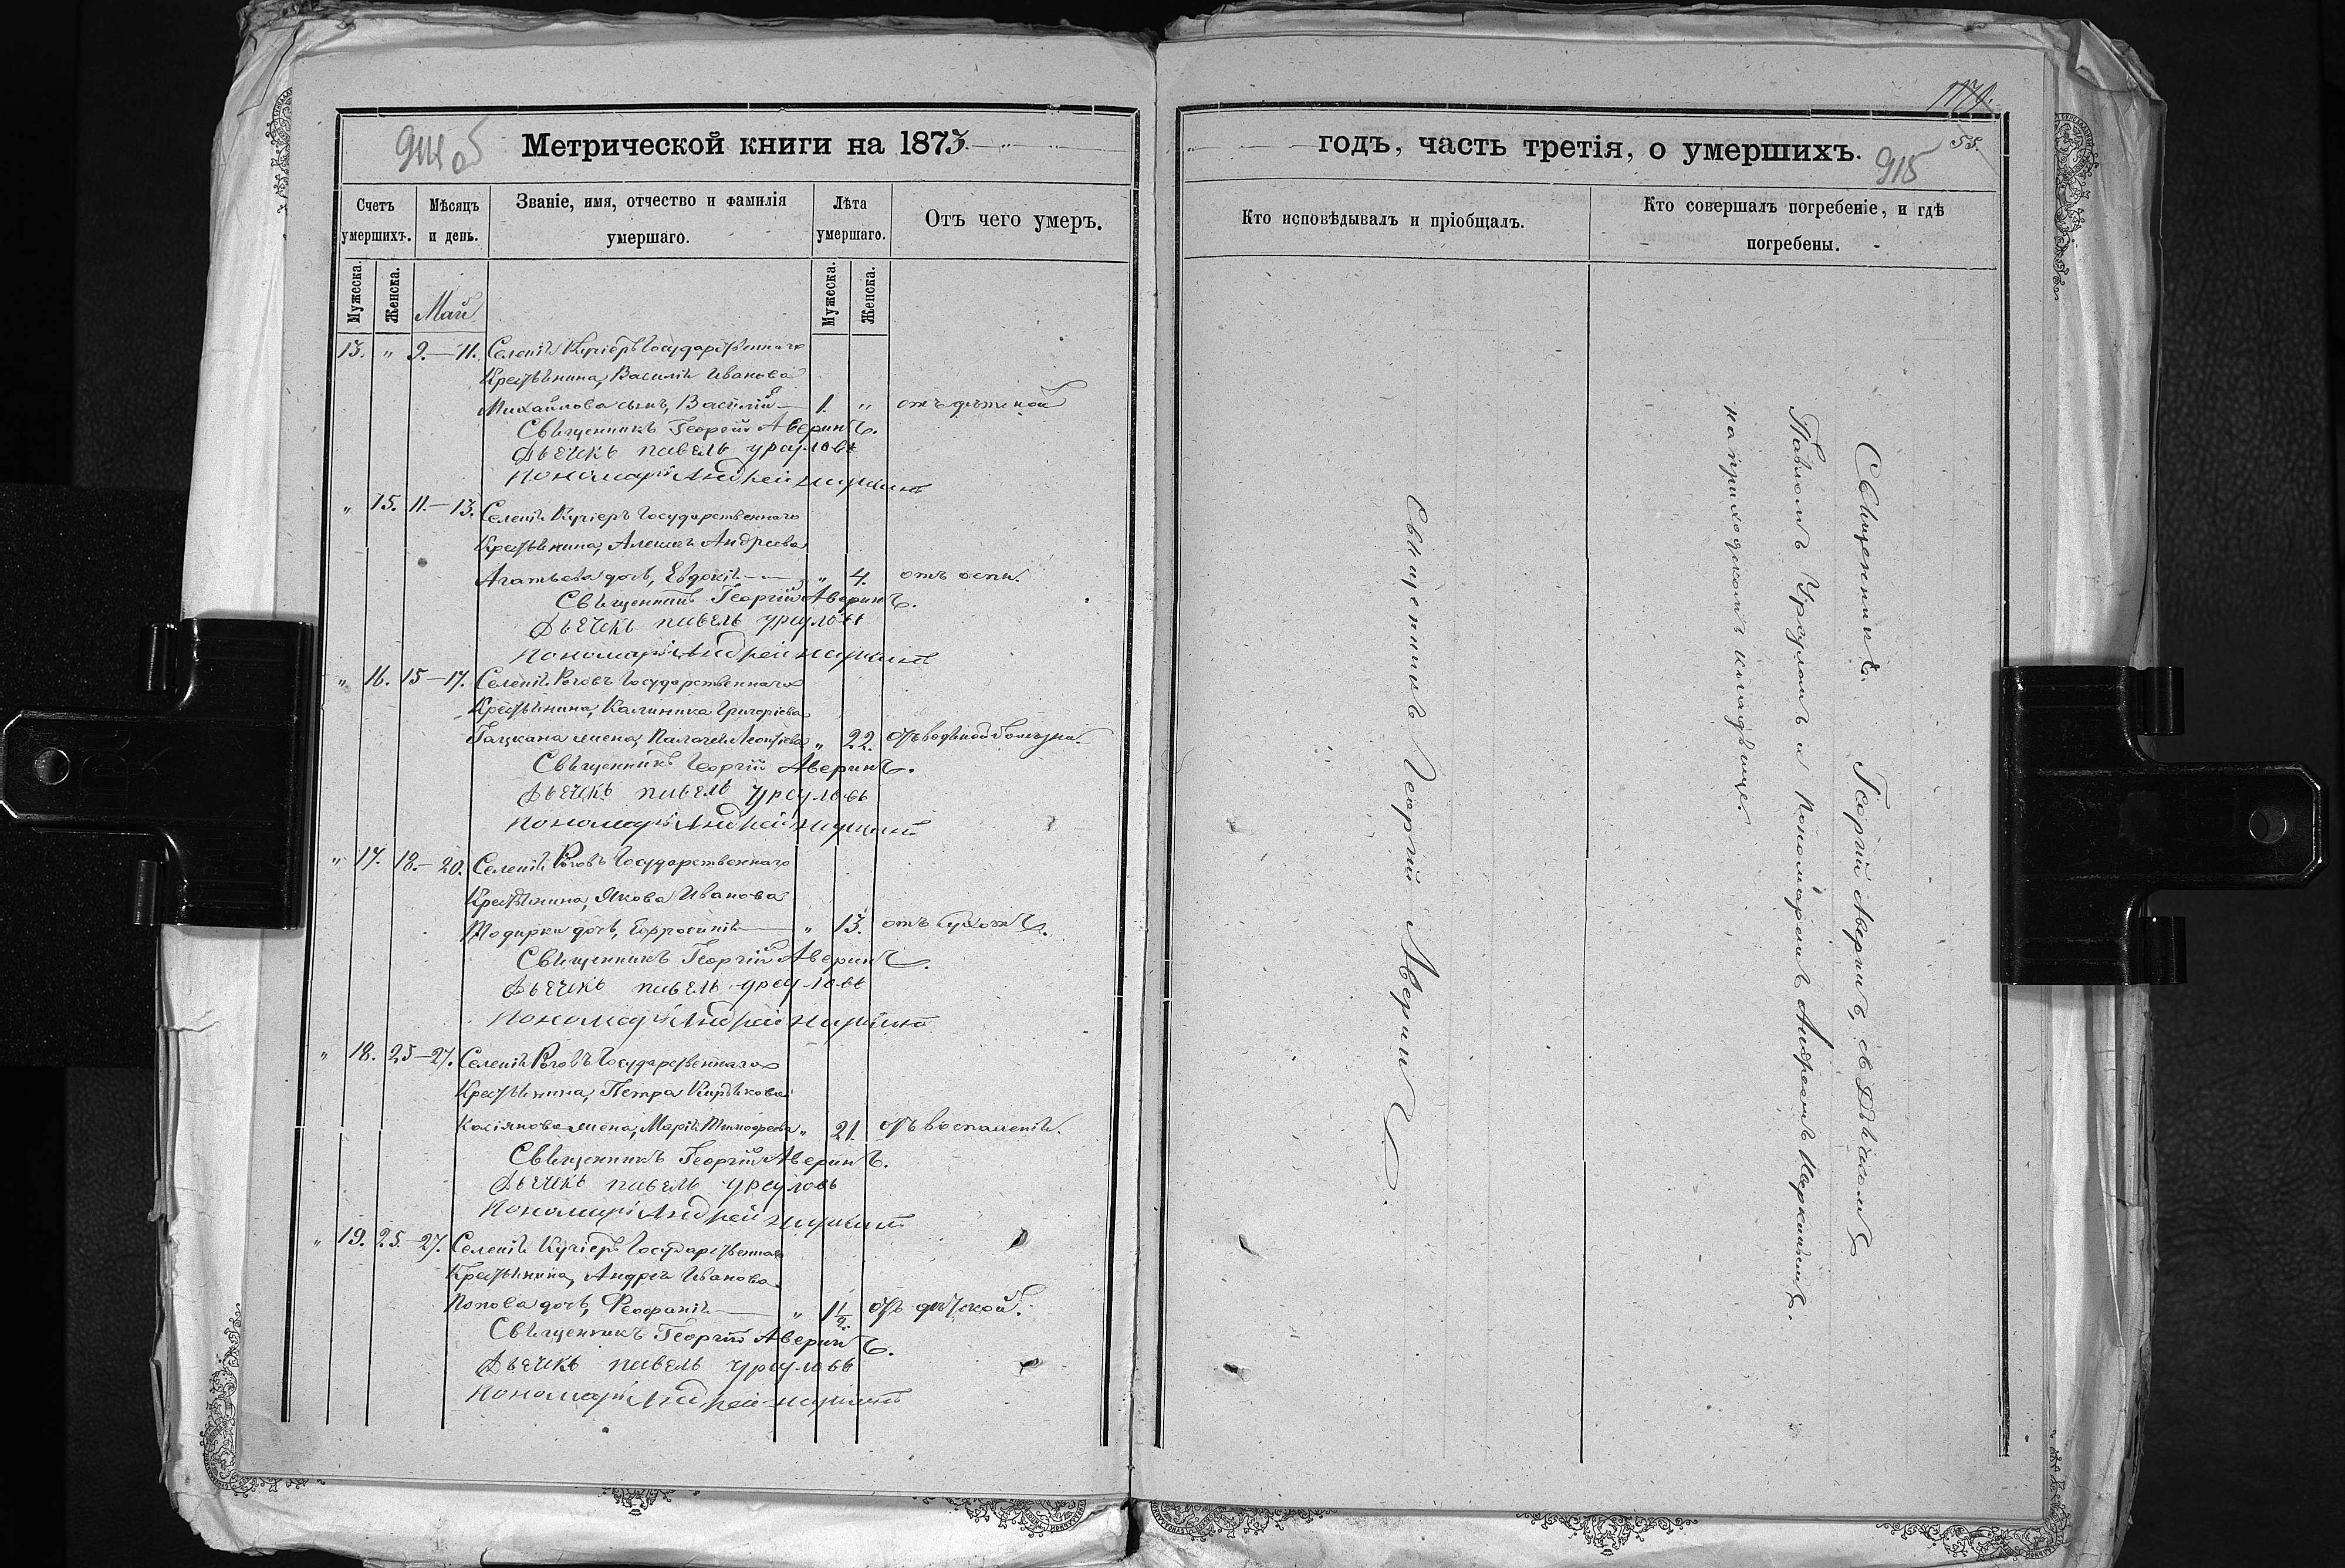 914 об
Метрической книги на 1873
Счетъ умершихъ.
Мѣсяцъ и день.
Званіе, имя, отчество и фамилія умершаго.
Лѣта умершаго.
Отъ чего умеръ.
Мужеска.
Женска.
Май
Мужеска.
Женска.
13. " 9.—11. Селенія Кучіеръ Государственнаго
Крестьянина, Василія Иванова
Михайлова сынъ, Василій — 1. " отъ дѣтской
Священникъ Георгій Аверинъ.
Дьячекъ павелъ урсуловъ
Пономарь Андрей
" 15. 11.—13. Селенія Кучіеръ Государственнаго
Крестьянина, Алексѣя Андреева
дочь, Евдокія — " 4. отъ оспы.
Священникъ Георгій Аверинъ.
Дьячекъ павелъ урсуловъ
Пономарь Андрей
" 16. 15—17. Селенія Роговъ Государственнаго
Крестьянина, Калиника Григоріева
жена, " 22. отъ водяной болѣзни.
Священникъ Георгій Аверинъ.
Дьячекъ павелъ урсуловъ
Пономарь Андрей
" 17. 18.—20. Селенія Роговъ Государственнаго
Крестьянина, Якова Иванова
Тодирки дочь, Ефросинія — " 13. отъ
Священникъ Георгій Аверинъ.
Дьячекъ павелъ урсуловъ
Пономарь Андрей
" 18. 25—27. Селенія Роговъ Государственнаго
Крестьянина, Петра Кирьякова
жена, Марія Тимофеева " 21. отъ воспаленія.
Священникъ Георгій Аверинъ.
Дьячекъ павелъ урсуловъ
Пономарь Андрей
" 19. 25.—27. Селенія Кучіеръ Государственнаго
Крестьянина, Андрея Иванова
Попова дочь, Феофанія — " 1 1/2 отъ дѣтской.
Священникъ Георгій Аверинъ.
Дьячекъ павелъ урсуловъ
Пономарь Андрей
55.
годъ, часть третія, о умершихъ.
915
Кто исповѣдывалъ и пріобщалъ.
Кто совершалъ погребеніе, и гдѣ погребены.
Священникъ Георгій Аверинъ
Священникъ Георгій Аверинъ, съ Дьячкомъ
Павломъ Урсуломъ и Пономаремъ Андреемъ
на приходскомъ кладбище.